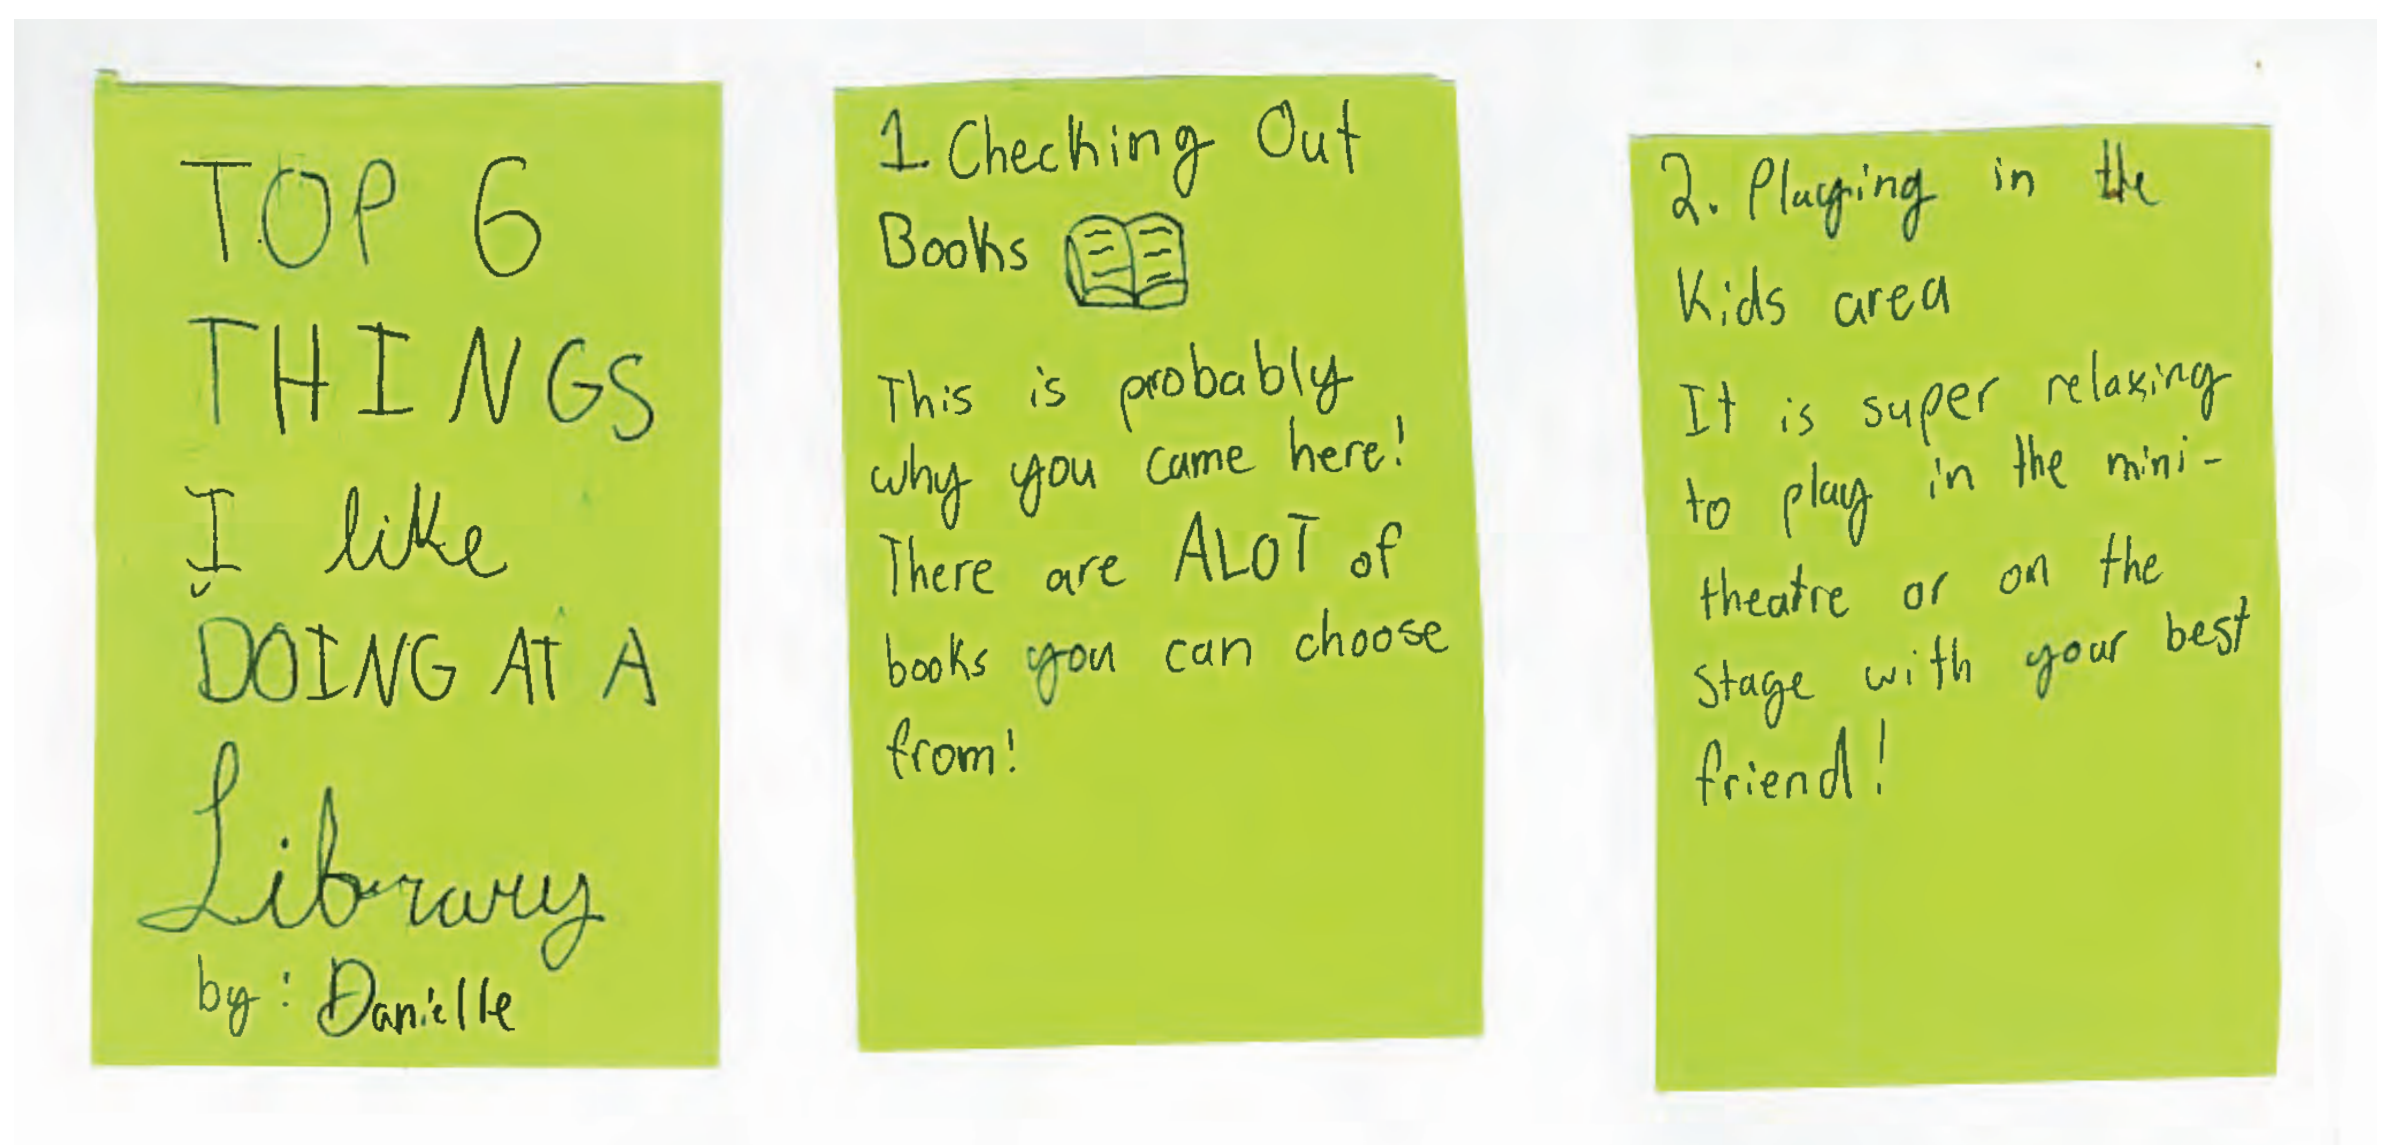 TOP 6
THINGS
I like
DOING AT A
Library
by: Danielle
1. Checking Out
Books
This is probably
why you came here!
There are ALOT of
books you can choose
from!
2. Playing in the
Kids area
It is super relaxing
to play in the mini-
theatre or on the
stage with your best
friend!